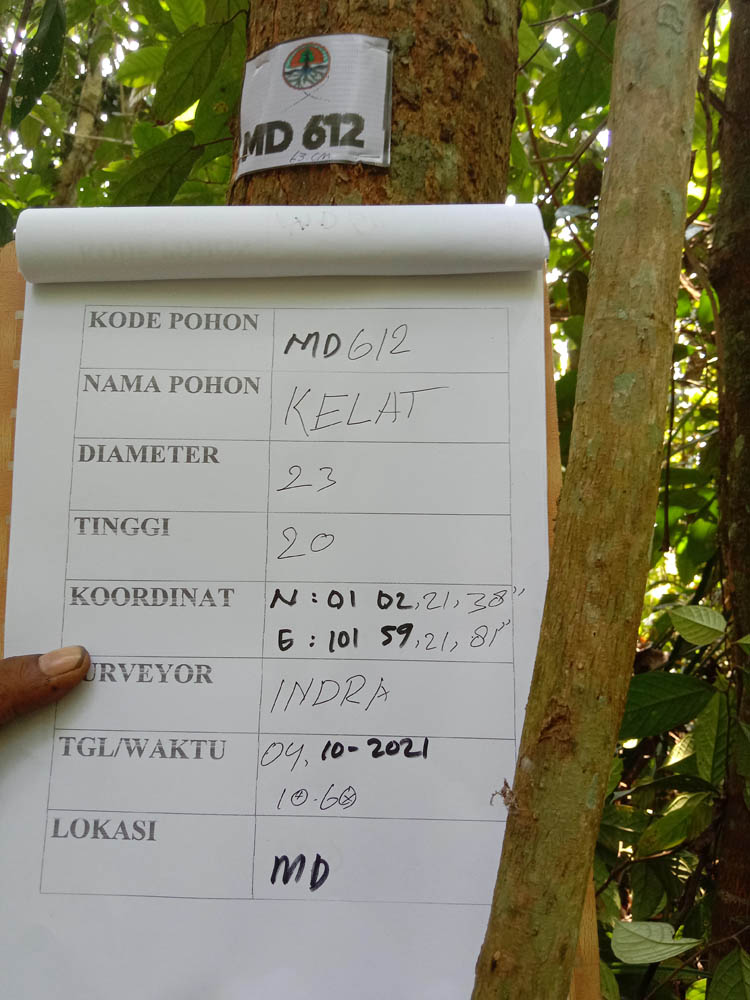 MD 612
63 CM
KODE POHON MD612
NAMA POHON KELAT
DIAMETER 23
TINGGI 20
KOORDINAT N : 01 02,21,38"
E : 101 59,21,81"
URVEYOR INDRA
TGL/WAKTU 04, 10-2021
LOKASI MD